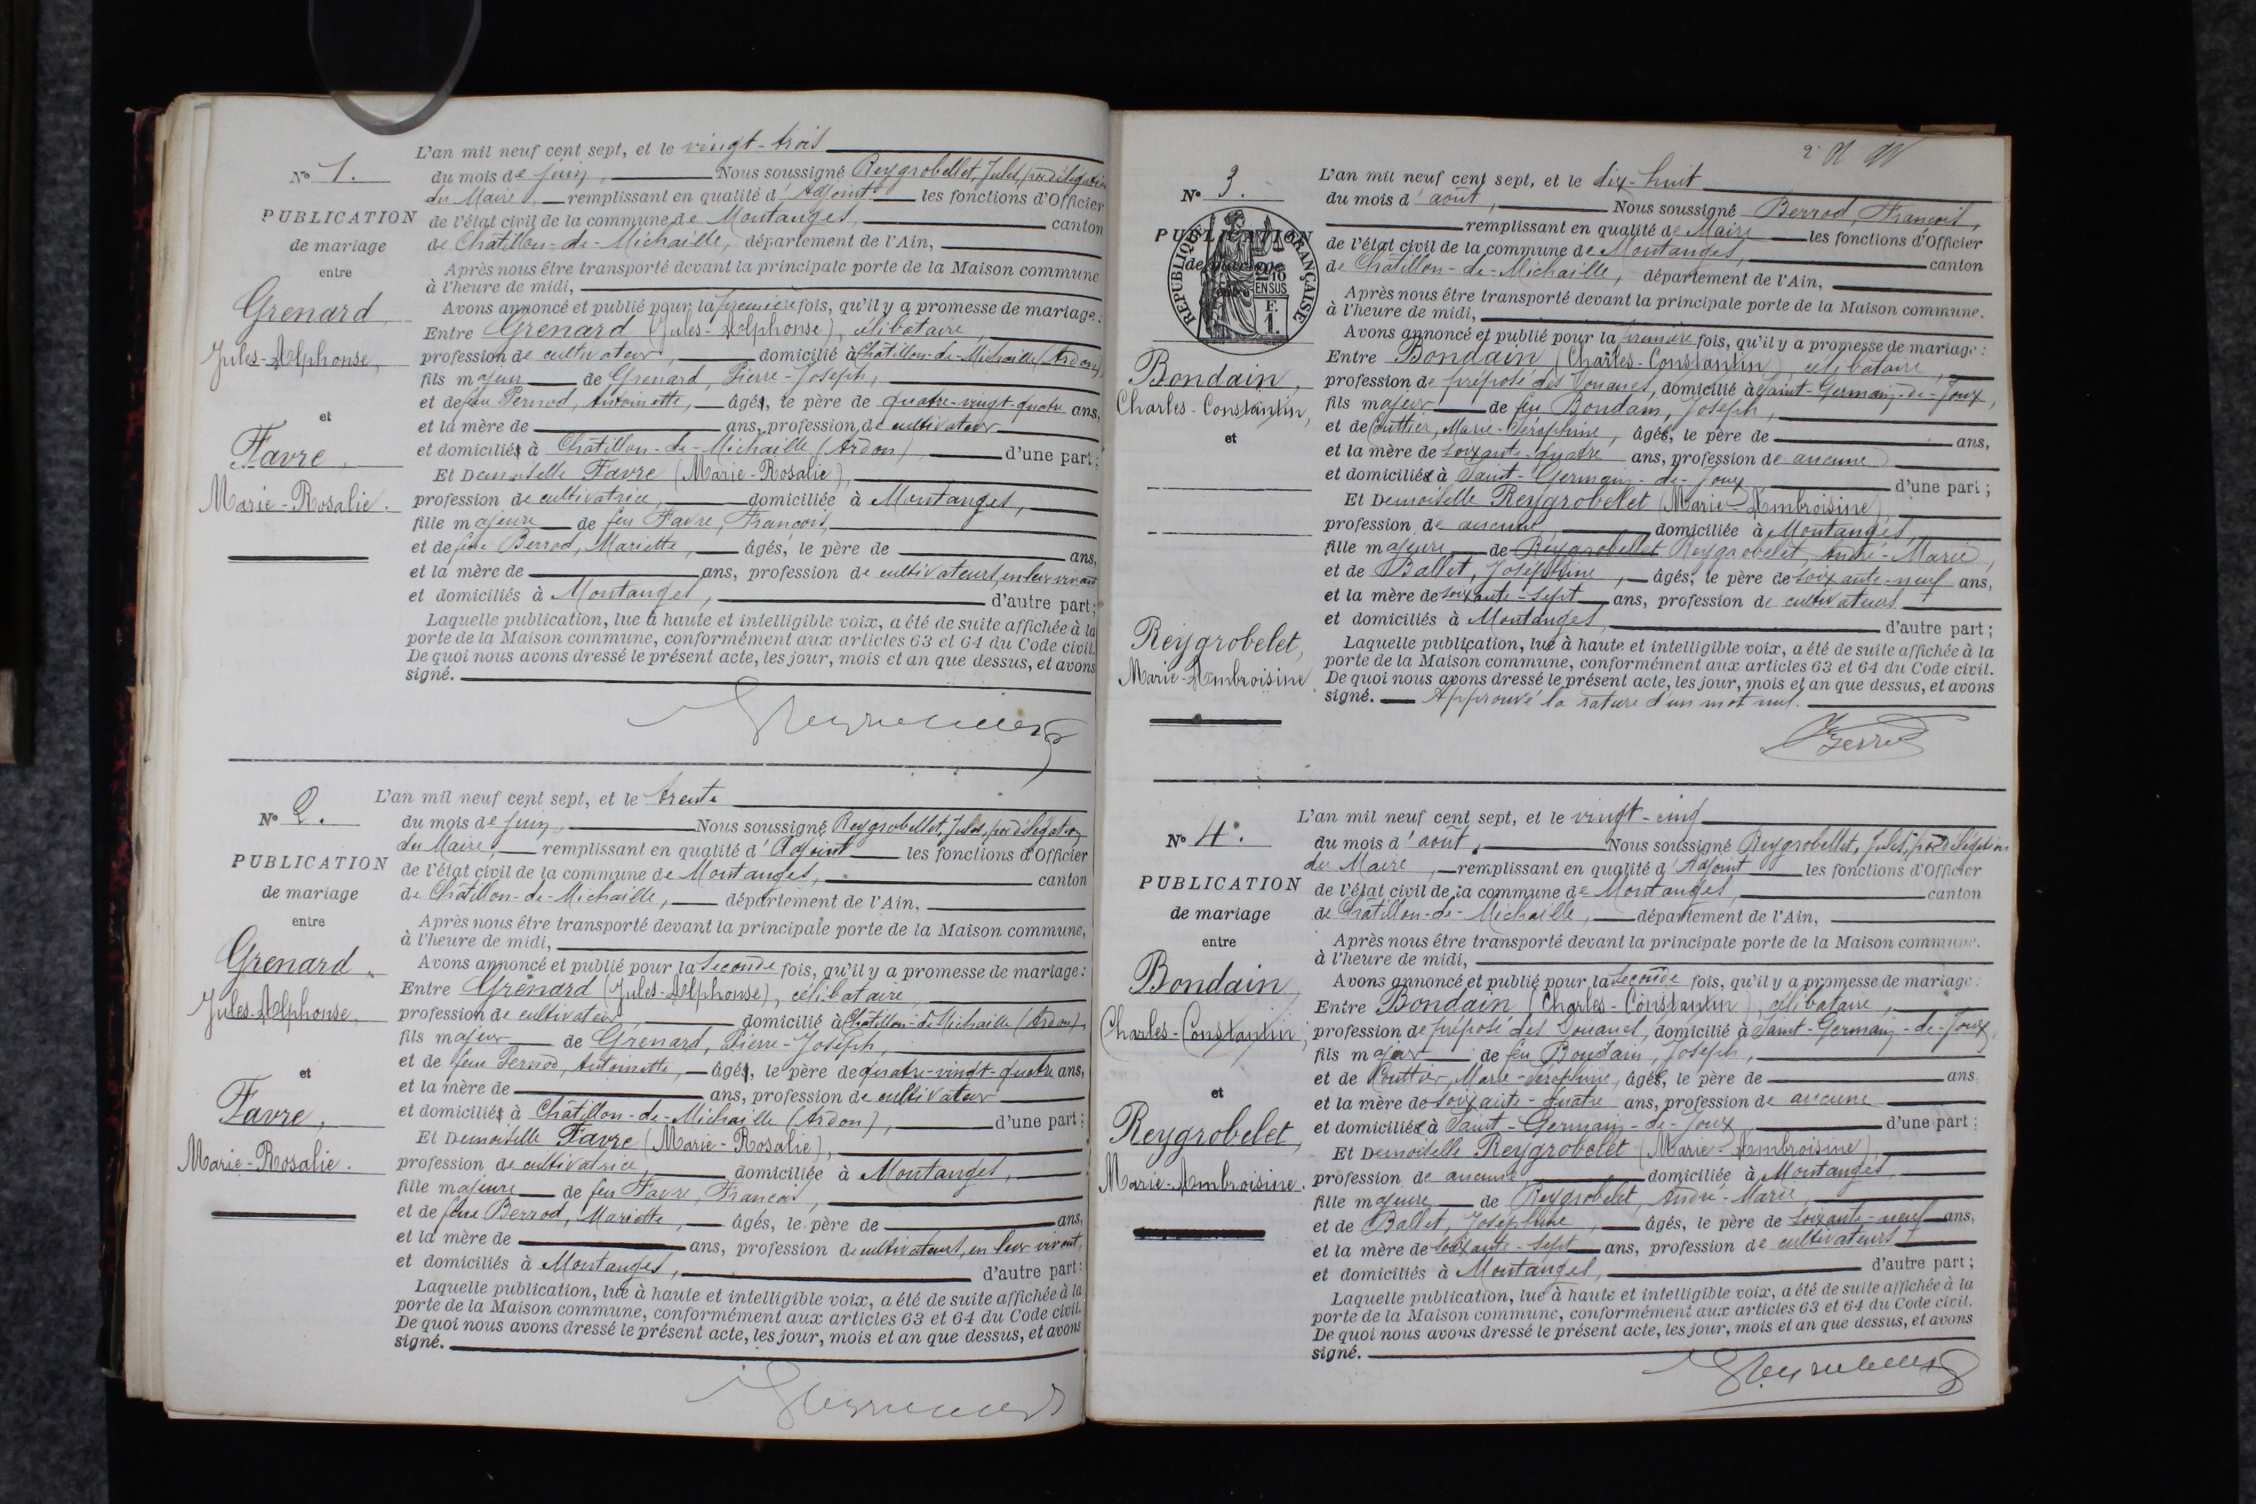 L'an mil neuf cent sept, et le vingt-trois
N° 1.
du mois de juin, Nous soussigné Reygrobellet, Jules, par délégation
du Maire, remplissant en qualité d'Adjoint les fonctions d'Officier
PUBLICATION
de l'état civil de la commune de Montanges, canton
de mariage
de Châtillon-de-Michaille, département de l'Ain,
entre
Après nous être transporté devant la principale porte de la Maison commune
à l'heure de midi,
Grenard
Avons annoncé et publié pour la première fois, qu'il y a promesse de mariage:
Entre Grenard (Jules-Alphonse), célibataire,
Jules-Alphonse,
profession de cultivateur, domicilié à Châtillon-de-Michaille (Ardon),
fils majeur de Grenard, Pierre-Joseph,
et de feu Pernod, Antoinette, âgés, le père de quatre-vingt-quatre ans,
et
et la mère de ans, profession de cultivateur
Favre,
et domiciliés à Châtillon-de-Michaille (Ardon), d'une part;
Et Demoiselle Favre (Marie-Rosalie),
Marie-Rosalie.
profession de cultivatrice, domiciliée à Montanges,
fille majeure de feu Favre, François,
et de feue Berrod, Mariette, âgés, le père de ans,
et la mère de ans, profession de cultivateurs, en leur vivant
et domiciliés à Montanges, d'autre part;
Laquelle publication, lue à haute et intelligible voix, a été de suite affichée à la
porte de la Maison commune, conformément aux articles 63 et 64 du Code civil.
De quoi nous avons dressé le présent acte, les jour, mois et an que dessus, et avons
signé.
L'an mil neuf cent sept, et le trente
N° 2.
du mois de juin, Nous soussigné Reygrobellet, Jules, par délégation
du Maire, remplissant en qualité d'Adjoint les fonctions d'Officier
PUBLICATION
de l'état civil de la commune de Montanges, canton
de mariage
de Châtillon-de-Michaille, département de l'Ain,
entre
Après nous être transporté devant la principale porte de la Maison commune,
à l'heure de midi,
Grenard
Avons annoncé et publié pour la seconde fois, qu'il y a promesse de mariage:
Entre Grenard (Jules-Alphonse), célibataire,
Jules-Alphonse,
profession de cultivateur domicilié à Châtillon-de-Michaille (Ardon),
fils majeur de Grenard, Pierre-Joseph,
et de feue Pernod, Antoinette, âgés, le père de quatre-vingt-quatre ans,
et
et la mère de ans, profession de cultivateur
Favre,
et domiciliés à Châtillon-de-Michaille (Ardon), d'une part;
Et Demoiselle Favre (Marie-Rosalie),
Marie-Rosalie.
profession de cultivatrice, domiciliée à Montanges,
fille majeure de feu Favre, François,
et de feue Berrod, Mariette, âgés, le père de ans,
et la mère de ans, profession de cultivateurs, en leur vivant,
et domiciliés à Montanges, d'autre part:
Laquelle publication, lue à haute et intelligible voix, a été de suite affichée à la
porte de la Maison commune, conformément aux articles 63 et 64 du Code civil.
De quoi nous avons dressé le présent acte, les jour, mois et an que dessus, et avons
signé.
L'an mil neuf cent sept, et le dix-huit
N° 3.
du mois d'août, Nous soussigné Berrod, François,
remplissant en qualité de Maire les fonctions d'Officier
PUBLICATION
de l'état civil de la commune de Montanges, canton
de mariage
de Châtillon-de-Michaille, département de l'Ain,
RÉPUBLIQUE FRANÇAISE
EN SUS
F.
1.
Après nous être transporté devant la principale porte de la Maison commune.
à l'heure de midi,
Avons annoncé et publié pour la première fois, qu'il y a promesse de mariage:
Entre Bondain (Charles-Constantin), célibataire,
Bondain,
profession de préposé des Douanes, domicilié à Saint-Germain-de-Joux,
Charles-Constantin,
fils majeur de feu Bondain, Joseph,
et de Couttier, Marie-Séraphine, âgés, le père de ans,
et
et la mère de soixante-quatre ans, profession de aucune
et domiciliés à Saint-Germain-de-Joux d'une part;
Et Demoiselle Reygrobelet (Marie-Ambroisine),
profession de aucune, domiciliée à Montanges,
fille majeure de Reygrobellet Reygrobelet, André-Marie,
et de Ballet, Joséphine, âgés, le père de soixante-neuf ans,
et la mère de soixante-sept ans, profession de cultivateurs
et domiciliés à Montanges, d'autre part;
Reygrobelet,
Laquelle publication, lue à haute et intelligible voix, a été de suite affichée à la
porte de la Maison commune, conformément aux articles 63 et 64 du Code civil.
Marie-Ambroisine
De quoi nous avons dressé le présent acte, les jour, mois et an que dessus, et avons
signé. Approuvé la rature d'un mot nul.
L'an mil neuf cent sept, et le vingt-cinq
N° 4.
du mois d'août, Nous soussigné Reygrobellet, Jules, par délégation
du Maire, remplissant en qualité d'Adjoint les fonctions d'Officier
PUBLICATION
de l'état civil de la commune de Montanges, canton
de mariage
de Châtillon-de-Michaille, département de l'Ain,
entre
Après nous être transporté devant la principale porte de la Maison commune.
à l'heure de midi,
Bondain
Avons annoncé et publié pour la seconde fois, qu'il y a promesse de mariage:
Entre Bondain (Charles-Constantin), célibataire,
Charles-Constantin,
profession de préposé des Douanes, domicilié à Saint-Germain-de-Joux,
fils majeur de feu Bondain, Joseph,
et de Couttier, Marie-Séraphine, âgés, le père de ans,
et
et la mère de soixante-quatre ans, profession de aucune
et domiciliés à Saint-Germain-de-Joux d'une part;
Reygrobelet,
Et Demoiselle Reygrobelet (Marie-Ambroisine)
Marie-Ambroisine.
profession de aucune domiciliée à Montanges,
fille majeure de Reygrobelet, André-Marie,
et de Ballet, Joséphine, âgés, le père de soixante-neuf ans,
et la mère de soixante-sept ans, profession de cultivateurs
et domiciliés à Montanges, d'autre part;
Laquelle publication, lue à haute et intelligible voix, a été de suite affichée à la
porte de la Maison commune, conformément aux articles 63 et 64 du Code civil.
De quoi nous avons dressé le présent acte, les jour, mois et an que dessus, et avons
signé.